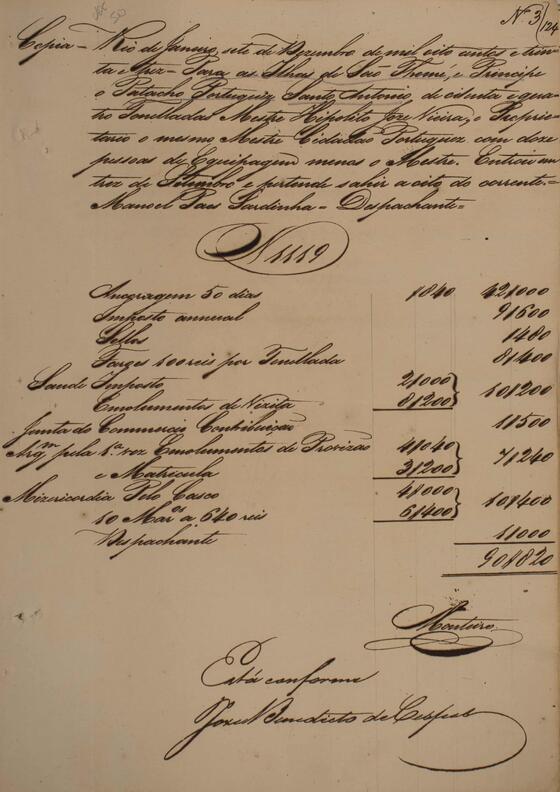 Nº 3
124
50
Copia – Rio de Janeiro, sete de Dezembro de mil oito centos e trin
ta e trez – Para as Ilhas de São Thomé, e Principe
o Patacho Portuguez Santo Antonio, de oitenta e qua
tro Tonelladas Mestre Hipolito Joze Vieira, o Proprie
tario o mesmo Mestre Cidadão Portuguez com doze
pessoas de Equipagem menos o Mestre. Entrou em
trez de Setembro e pertende sahir a oito do corrente =
Manoel Paes Sardinha – Despachante =
Nº 1119
Ancoragem 50 dias 1$840 42$000
Imposto annual 9$600
Sellos 1$480
Farges 100 reis por Tonellada 8$400
Saude Imposto 2$000
Emolumentos de Vizita 8$200 10$200
Junta do Commercio Contribuição 1$500
Arqm pela 1.ª vez Emolumentos de Provizão 4$040
e Matricula 3$200 7$240
Mizericordia Pelo Casco 4$000
10 Mar.os a 640 reis 6$400 10$400
Despachante 1$000
90$820
Monteiro
Está conforme
Joze Benedicto de